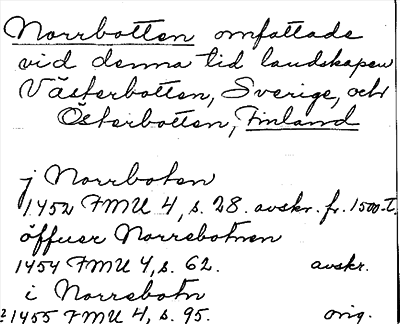 Norrbotten omfattade
vid denna tid landskapen
Västerbotten, Sverige, och
Österbotten, Finland
j Norrboten
1452 FMU 4, s. 28. avskr. fr. 1500-t.
öffuer Norrebotnen
1454 FMU 4, s. 62. avskr.
i Norrebotn
?1455 FMU 4, s. 95. orig.